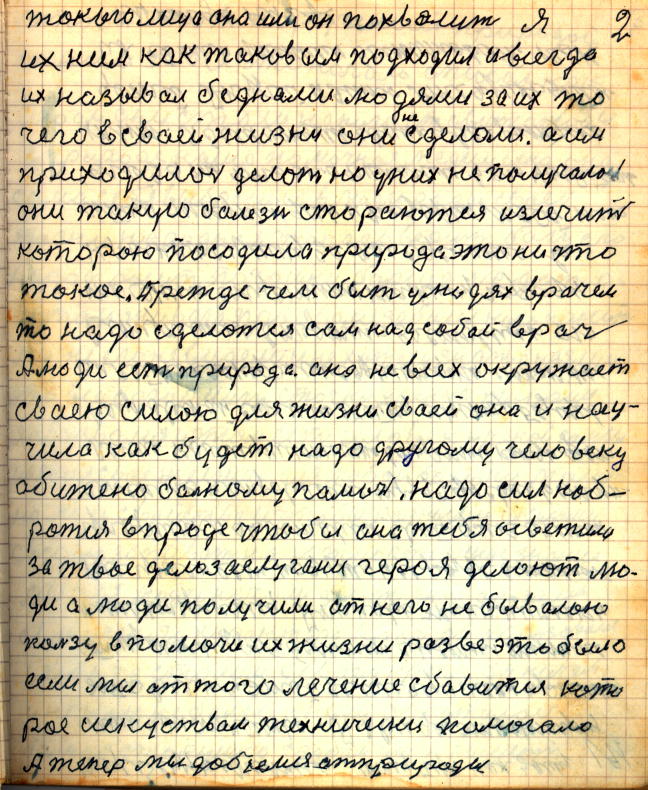 токого лица она или он похвалит Я 2
их ним как таковым подходил и всегда
их называл бедными людями за их то
чего в сваей жизни они не сделоли. а им
приходилос делот но у них не получалос
они такую балезн стораются излечит
которою посодила природа это ни что
токое. Прежде чем быт у людях врачем
то надо сделотся сам над собой врач
А люди ест природа. она не всех окружает
сваею силою для жизни сваей она и нау-
чила как будет надо другому человеку
обижено балному памоч. надо сил наб-
ротся в проде чтобы она тебя осветила
За твое дело заслугами героя делоют лю-
ди а люди получили от него не бывалою
ползу в помочи их жизни разве это было
если мы от того лечение сбавится кото
рое искуствам технически помогало
А тепер мы добемся от природы